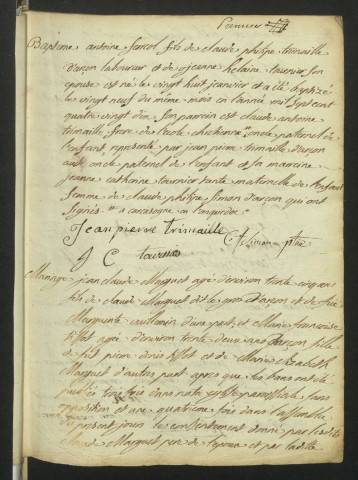 Premier
Baptême antoine fils de claude philipe trimaille
d'arçon laboureur et de jeanne helaine tournier son
epouse est né le vingt huit janvier et a été baptizé
le vingt neuf du même mois en l'année mil sept cent
quatre vingt dix son parrein est claude antoine
trimaille frere des ecole chretienne oncle paternel de
l'enfant represente par jean pierre trimaille d'arçon
aussi oncle paternel de l'enfant et sa marreine
jeanne catherine tournier tante maternelle de l'enfant
femme de claude philipe Simon d'arçon qui ont
signés a carcasonne en languedoc
Jean pierre trimaille
J C tournier
Simon ptre
Mariage jean claude Marguet agé d'environ trente cinq ans
fils de claude Marguet dit le gros d'arçon et de feue
Marguerite d'une part, et Marie françoise
agé d'environ trente deux ans d'arçon fille
de pierre et de Marie Elizabeth
Marguet d'autres part apres que les bans ont été
publiés trois fois dans notre eglise paroissiale sans
opposition et une quatrieme fois dans
present jours le consentement donné par led
claude Marguet pere de l'epoux et par ladite